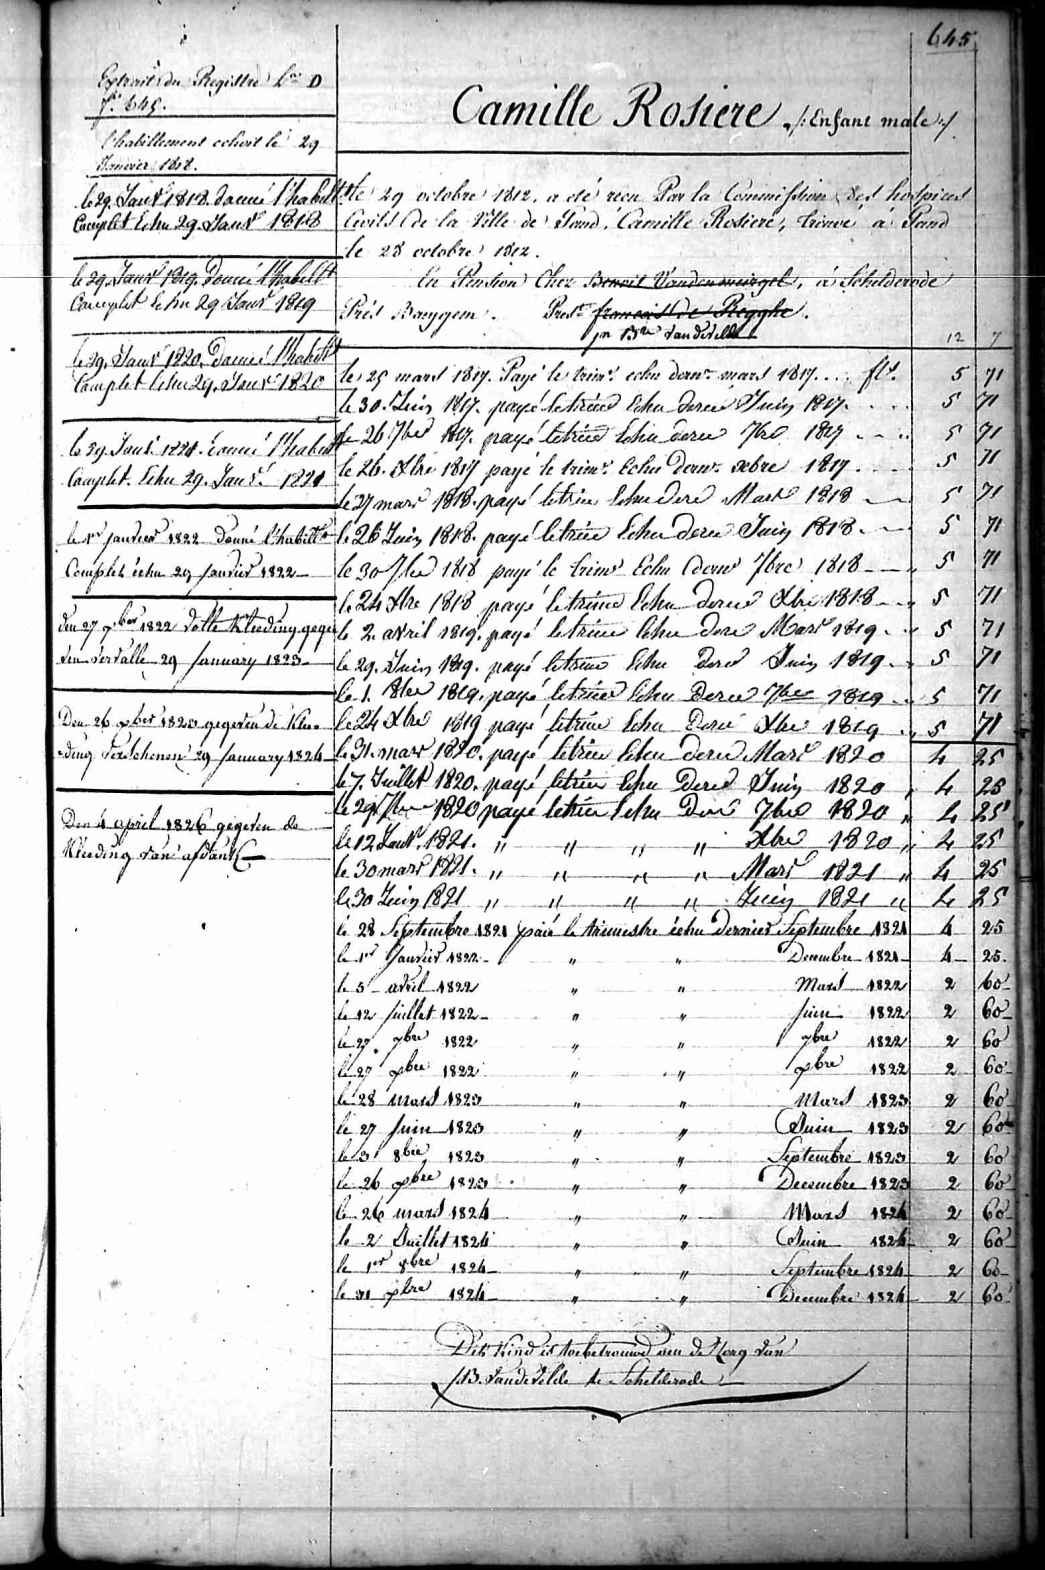 645
Extrait du Registre L.ra D
f.o 645.
l'habillement echoit le 29
Janvier 1818.
le 29. Janv.r 1818. donné l'habillt
Complet Echu 29. Janv.r 1818
le 29. Janv.r 1819. Donné l'habillt
Complet Echu 29 Janv.r 1819
le 29. Janv.r 1820. Donné l'habillt
Complet Echu 29. Janv.r 1820
le 29. Janv.r 1821. donné l'habillt
Complet. Echu 29. Janv.r 1821
le 1er janvier 1822 donné l'habillt
Complet échu 29 janvier 1822
den 27 xber 1822 volle Kleeding gege
ven vervalle 29 January 1823
Den 26 xber 1823 gegeven de Klee-
ding verschenen 29 January 1824
Den 4 april 1826 gegeven de
Kleeding van afstand
Camille Rosiere ./: Enfant male :/
le 29 octobre 1812, a été recu Par la Commission des hospices
Civils de la Ville de Gand, Camille Rosiere, trouvé à Gand
le 28 octobre 1812.
En Pension Chez Benoit Vanden , à Schelderode
Près Bayggem. Prest francois de Regghe.
Bte vandevelde
12 7
le 25 mars 1817. Payé le trimr. echu dernr. mars 1817. . . . fls. 5 71
le 30. Juin 1817. payé le trime Echu dernr Juin 1817. . . . 5 71
le 26 7bre 1817. payé le trime Echu dernr 7bre 1817 . . . 5 71
le 26. Xbre 1817 payé le trimr. Echu dernr. xbre 1817 . . . . 5 71
le 27 mars 1818. payé le trime Echu dernr Mars 1818 5 71
le 26 Juin 1818. payé le trime Echu dernr Juin 1818 5 71
le 30 7bre 1818 payé le trimr Echu dernr 7bre 1818 5 71
le 24 Xbre 1818 payé le trime Echu dernr Xbre 1818 5 71
le 2. avril 1819. payé le trime Echu dernr Mars 1819 5 71
le 29. Juin 1819. payé le trime Echu Dernr Juin 1819 5 71
le 1. 8bre 1819. payé le trime Echu Dernr 7bre 1819 5 71
le 24 Xbre 1819 payé le trime Echu Dernr Xbre 1819 5 71
le 31. mars 1820. payé le trime Echu dernr Mars 1820 4 25
le 7. Juillet 1820. payé le trime Echu Dernr Juin 1820 „ 4 25
le 29 7bre 1820 payé le trime Echu Dernr 7bre 1820 „ 4 25
le 12 Janvr. 1821. „ „ „ „ Xbre 1820 „ 4 25
le 30 mars 1821. „ „ „ „ Mars 1821 „ 4 25
le 30 Juin 1821 „ „ „ „ Juin 1821 „ 4 25
le 28 Septembre 1821 païé le trimestre échu dernier Septembre 1821 4 25
le 1er janvier 1822 „ „ Decembre 1821 4 25
le 5 avril 1822 „ „ Mars 1822 2 60
le 12 juillet 1822 „ „ juin 1822 2 60
le 27 7bre 1822 „ „ 7bre 1822 2 60
le 27 xbre 1822 „ „ xbre 1822 2 60
le 28 mars 1823 „ „ Mars 1823 2 60
le 27 juin 1823 „ „ Juin 1823 2 60
le 3 8bre 1823 „ „ Septembre 1823 2 60
le 26 xbre 1823 „ „ Decembre 1823 2 60
le 26 mars 1824 „ „ Mars 1824 2 60
le 2 Juillet 1824 „ „ Juin 1824 2 60
le 1er 8bre 1824 „ „ Septembre 1824 2 60
le 31 xbre 1824 „ „ Decembre 1824 2 60
Dit Kind is toebetrouwd aen de Zorg van
J.B. Vande Velde te Schelderode